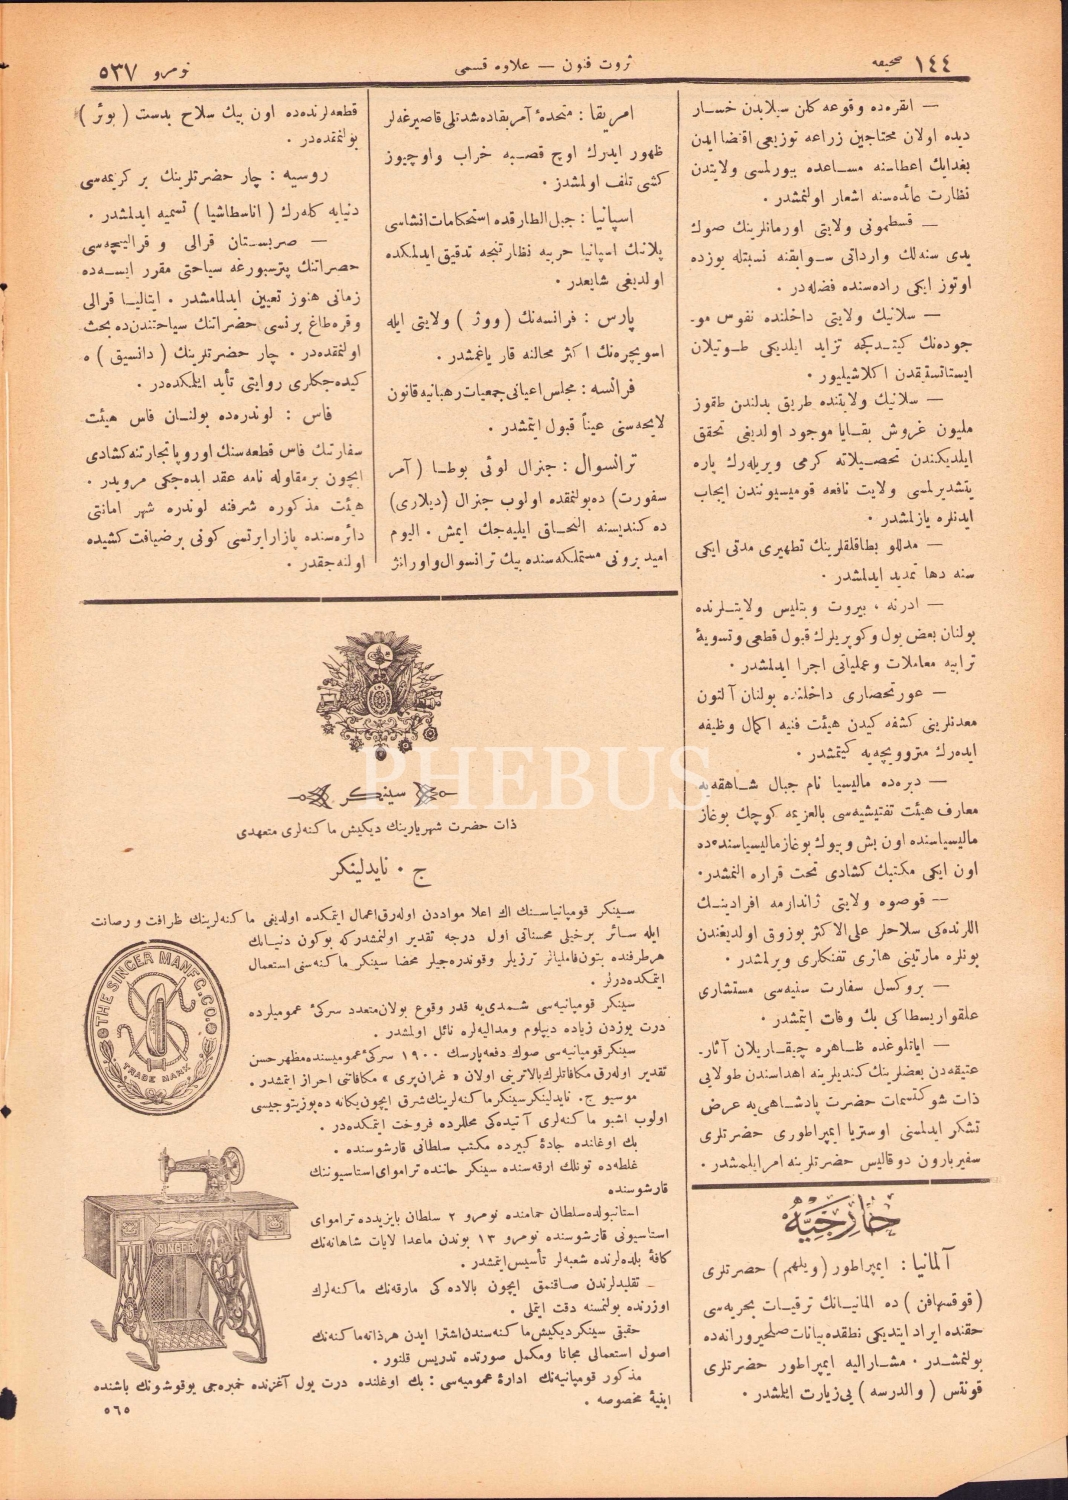 ١٤٤ صحيفه
ثروت فنون — علاوه قسمى
نومرو ٥٣٧
— انقره‌ده وقوعه كلن سيلابدن خسار
ديده اولان محتاجين زراعه توزيعى اقتضا ايدن
بغدايك اعطاسنه مساعده بيورلمسى ولايتدن
نظارت عائده‌سنه اشعار اولنمشدر .
— قسطمونى ولايتى اورمانلرينك صوك
يدى سنه‌لك وارداتى سوابقنه نسبتله يوزده
اوتوز ايكى راده‌سنده فضله‌در .
— سلانيك ولايتى داخلنده نفوس مو-
جوده‌نك كيتدكجه تزايد ايلديكى طوتيلان
ايستاتستيقدن اكلاشيليور .
— سلانيك ولايتنده طريق بدلندن طقوز
مليون غروش بقايا موجود اولديغى تحقق
ايلديكندن تحصيلاته كرمى ويريله‌رك پاره
يتشديرلمسى ولايت نافعه قوميسيونندن ايجاب
ايدنلره يازلمشدر .
— مدللو بطاقلقلرينك تطهيرى مدتى ايكى
سنه دها تمديد ايدلمشدر .
— ادرنه ، بيروت وبتليس ولايتلرنده
بولنان بعض يول وكوپريلرك قبول قطعى وتسويهٔ
ترابيه معاملات وعملياتى اجرا ايدلمشدر .
— عورتحصارى داخلنده بولنان آلتون
معدنلرينى كشفه كيدن هيئت فنيه اكمال وظيفه
ايده‌رك متروويچه‌يه كيتمشدر .
— دبره‌ده ماليسيا نام جبال شاهقه‌يه
معارف هيئت تفتيشيه‌سى بالعزيمه كوچك بوغاز
ماليسياسنده اون بش وبيوك بوغاز ماليسياسنده‌ده
اون ايكى مكتبك كشادى تحت قراره النمشدر.
-- قوصوه ولايتى ژاندارمه افرادينك
اللرنده‌كى سلاحلر على الاكثر بوزوق اولديغندن
بونلره مارتينى هانرى تفنكلرى ويرلمشدر .
— بروكسل سفارت سنيه‌سى مستشارى
علقواريسطاكى بك وفات ايتمشدر .
— اياثلوغده ظاهره چيقاريلان آثار-
عتيقه‌دن بعضلرينك كنديلرينه اهداسندن طولايى
ذات شوكتسمات حضرت پادشاهى‌يه عرض
تشكر ايدلمسنى اوستريا ايمپراطورى حضرتلرى
سفير بارون دوقاليس حضرتلرينه امر ايلمشدر .
خارجيه
آلمانيا : ايمپراطور (ويلهلم) حضرتلرى
(قوقسهافن) ده المانيانك ترقيات بحريه‌سى
حقنده ايراد ايتديكى نطقده بيانات صلحپرورانه‌ده
بولنمشدر . مشاراليه ايمپراطور حضرتلرى
قونتس ( والدرسه ) يى زيارت ايلمشدر .
امريقا : متحدهٔ آمريقاده شدتلى قاصيرغه‌لر
ظهور ايدرك اوچ قصبه خراب واوچيوز
كشى تلف اولمشدر .
اسپانيا : جبل الطارقده استحكامات انشاسى
پلانك اسپانيا حربيه نظارتنجه تدقيق ايدلمكده
اولديغى شايعدر .
پارس : فرانسه‌نك (ووژ) ولايتى ايله
اسويچره‌نك اكثر محالنه قار ياغمشدر .
فرانسه : مجلس اعيانى جمعيات رهبانيه قانون
لايحه‌سنى عيناً قبول ايتمشدر .
ترانسوال : جنرال لوئى بوطا ( آمر
سفورت) ده‌بولنمقده اولوب جنرال (ديلارى)
ده كنديسنه التحاق ايليه‌جك ايمش . اليوم
اميد برونى مستملكه‌سنده بيك ترانسوال واورانژ
قطعه‌لرنده‌ده اون بيك سلاح بدست ( بوئر )
بولنمقده‌در .
روسيه : چار حضرتلرينك بر كريمه‌سى
دنيايه كله‌رك (اناسطاشيا) تسميه ايدلمشدر .
— صربستان قرالى و قراليچه‌سى
حضراتنك پترسبورغه سياحتى مقرر ايسه‌ده
زمانى هنوز تعيين ايدلمامشدر . ايتاليا قرالى
وقره‌طاغ پرنسى حضراتنك سياحتندن‌ده بحث
اولنمقده‌در . چار حضرتلرينك (دانسيق) ه
كيده‌جكلرى روايتى تأيد ايلمكده‌در .
فاس : لوندره‌ده بولنان فاس هيئت
سفارتنك فاس قطعه‌سنك اوروپا تجارتنه كشادى
ايچون بر مقاوله نامه عقد ايده‌جكى مرويدر .
هيئت مذكوره شرفنه لوندره شهر امانتى
دائره‌سنده پازار ايرتسى كونى بر ضيافت كشيده
اولنه‌جقدر .
سينكر
ذات حضرت شهريارينك ديكيش ماكنه‌لرى متعهدى
ج . نايدلينكر
سينكر قومپانياسنك اك اعلا موادندن اوله‌رق اعمال ايتمكده اولديغى ماكنه‌لرينك ظرافت و رصانت
ايله سائر برخيلى محسناتى اول درجه تقدير اولنمشدركه بوكون دنيانك
هرطرفنده بتون فاميليالر ترزيلر وقوندره‌جيلر محضا سينكر ماكنه‌سنى استعمال
ايتمكده‌درلر .
سينكر قومپانيه‌سى شمدى‌يه قدر وقوع بولان متعدد سركئ عموميلرده
درت يوزدن زياده ديپلوم ومداليه‌لره نائل اولمشدر .
سينكر قومپانيه‌سى صوك دفعه پارسك ١٩٠٠ سركئ عموميسنده مظهر حسن
تقدير اوله‌رق مكافاتلرك بالاترينى اولان « غران پرى » مكافاتنى احراز ايتمشدر .
موسيو ج. نايدلينكر سينكر ماكنه‌لرينك شرق ايچون يكانه ده‌پوزيتوجيسى
اولوب اشبو ماكنه‌لرى آتيده‌كى محللرده فروخت ايتمكده‌در .
بك اوغلنده جادهٔ كبيرده مكتب سلطانى قارشوسنده .
غلطه‌ده تونلك ارقه‌سنده سينكر خاننده تراموای استاسيوننك
قارشوسنده
استانبولده سلطان حمامنده نومرو ٢ سلطان بايزيدده تراموای
استاسيونى قارشوسنده نومرو ١٣ بوندن ماعدا ولايات شاهانه‌نك
كافهٔ بلده‌لرنده شعبه‌لر تأسيس ايتمشدر .
_ تقليدلرندن صاقنمق ايچون بالاده‌كى مارقه‌نك ماكنه‌لرك
اوزرنده بولنمسنه دقت ايتملى .
حقيقى سينكر ديكيش ماكنه‌سندن اشترا ايدن هر ذاته ماكنه‌نك
اصول استعمالى مجانا ومكمل صورتده تدريس قلنور .
مذكور قومپانيه‌نك ادارهٔ عموميه‌سى : بك اوغلنده درت يول آغزنده خمبره‌جى يوقوشونك باشنده
ابنيهٔ مخصوصه .
٥٦٥
THE SINGER MANFG. CO.
TRADE MARK
SINGER
PHEBUS